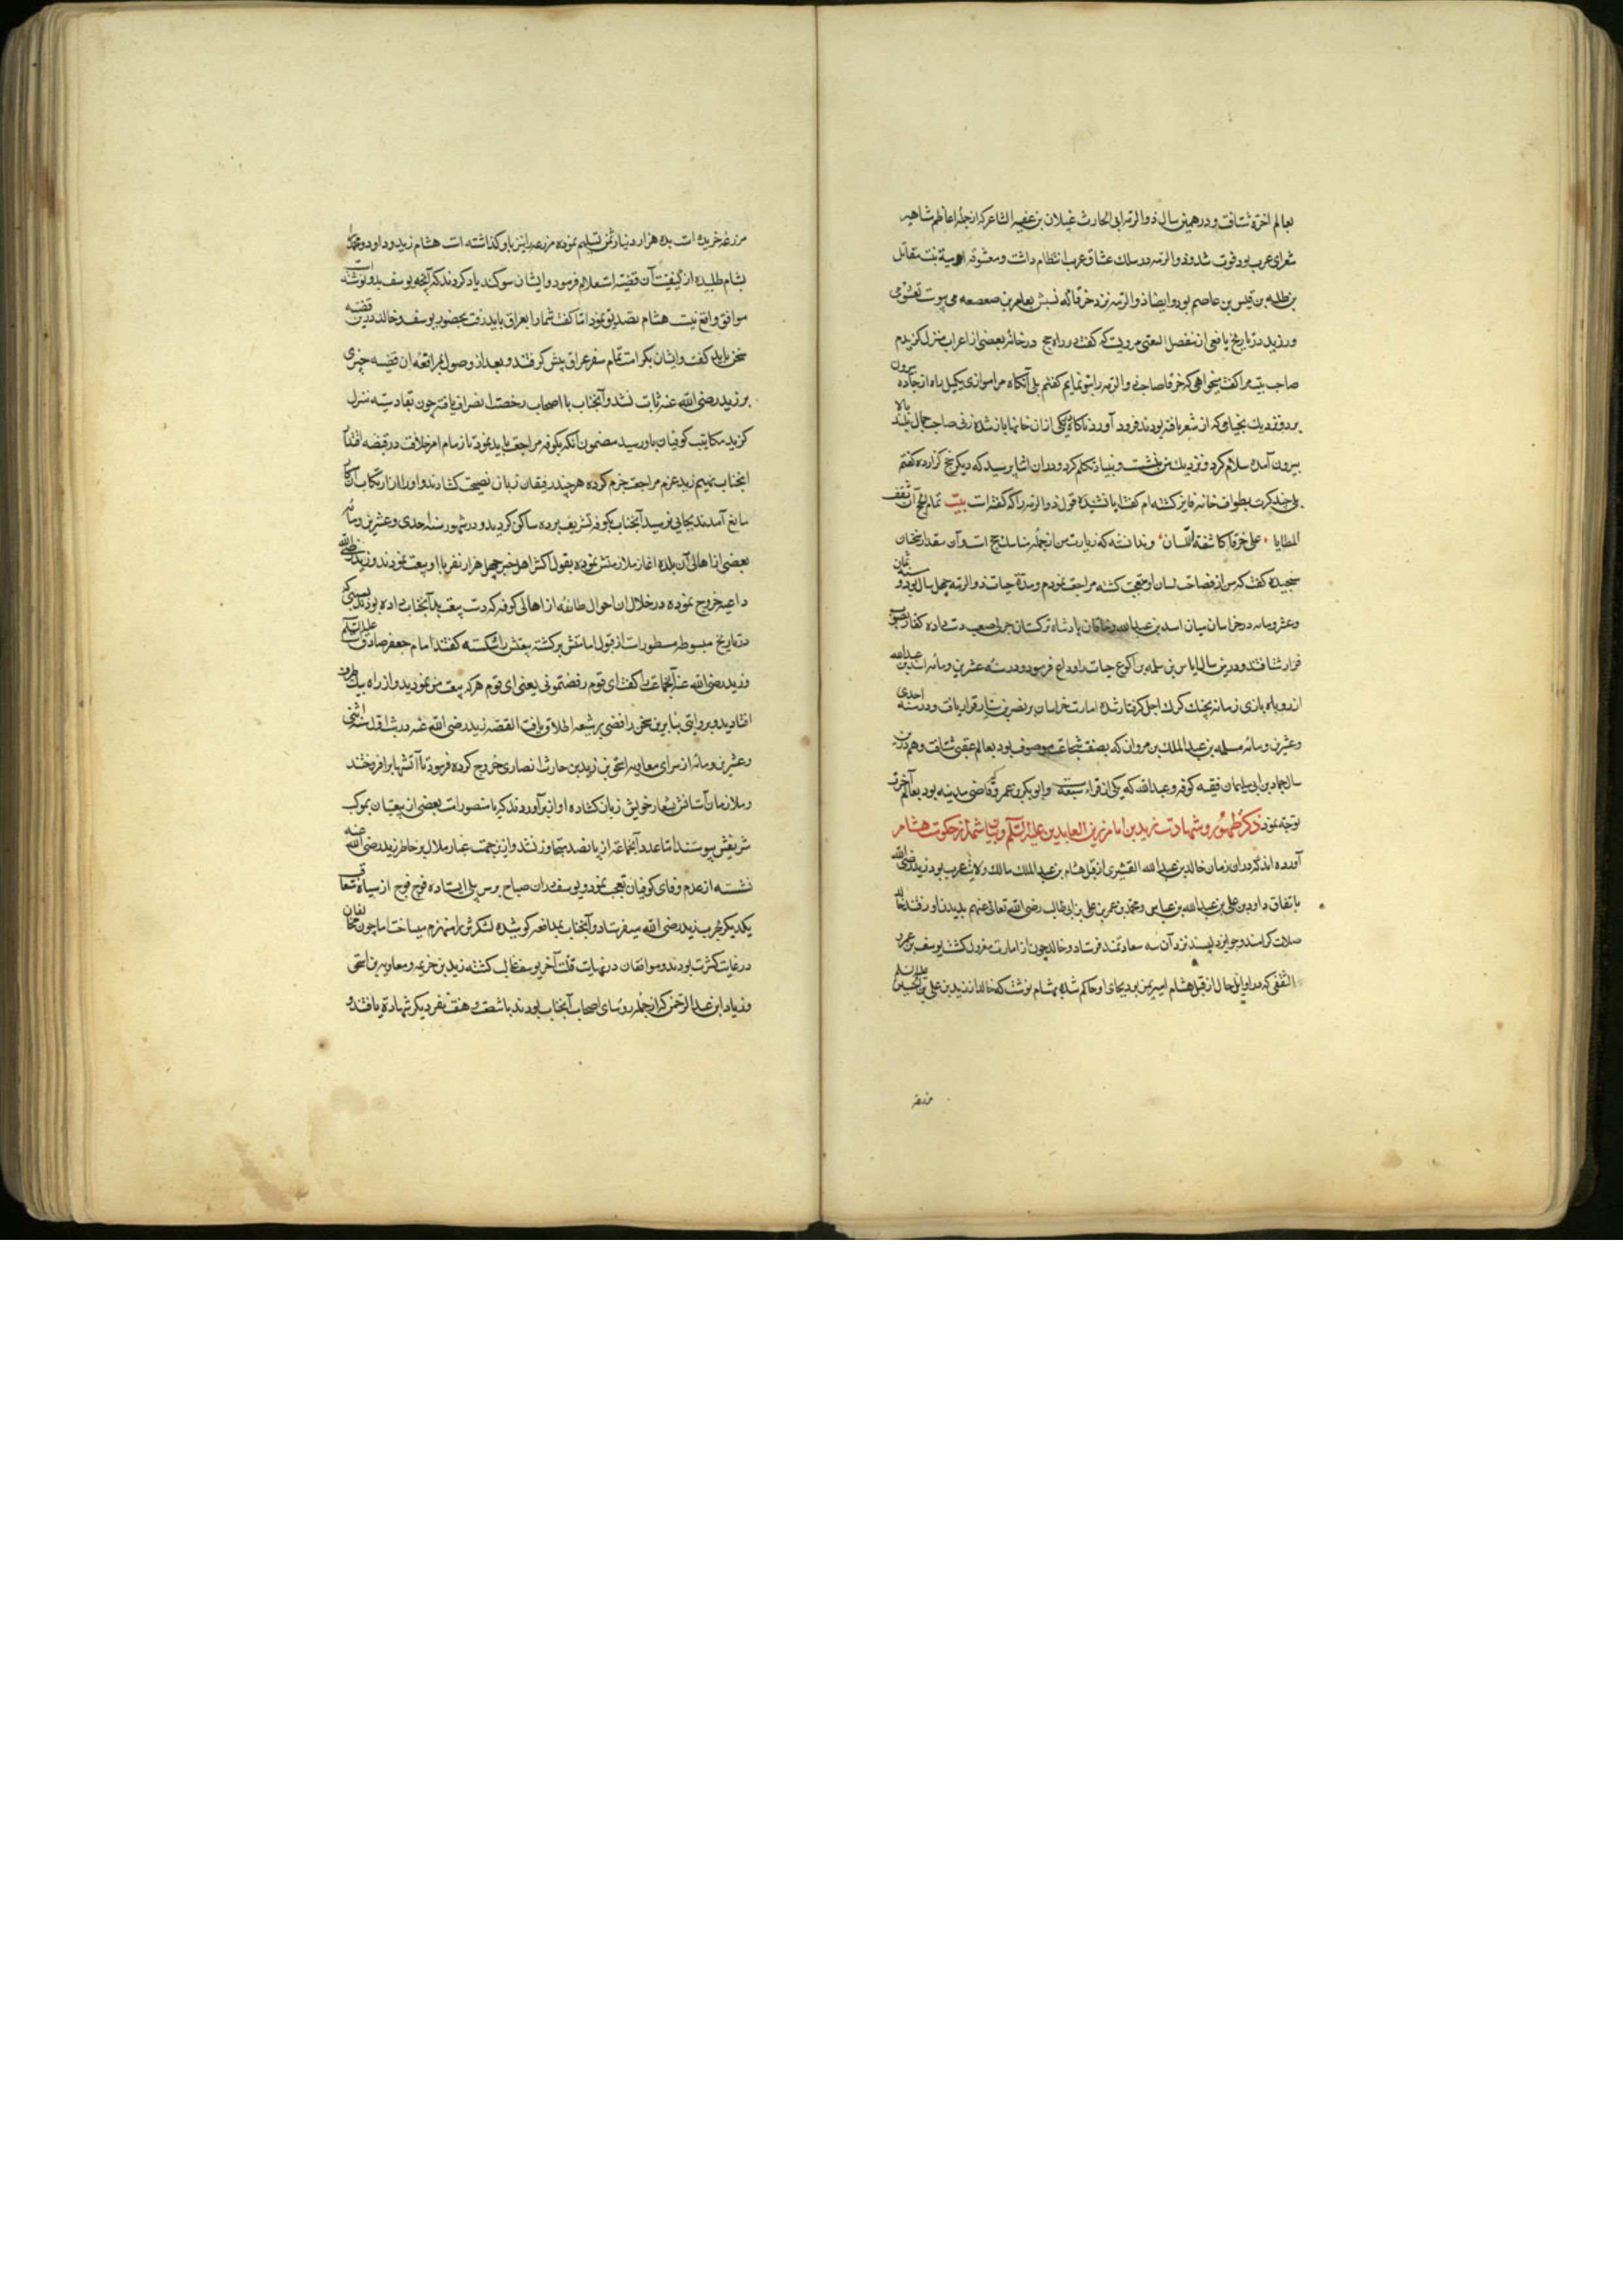 بعالم آخرة شتافت و در همین سال ذوالرمه ابی الحارث غیلان بن عقبه الشاعر که از جمله اعاظم مشاهیر
شعرای عرب بود فوت شد و ذوالرمه در سلک عشاق عرب انتظام داشت و معشوقه او میة بنت مقاتل
بن طلبه بن قیس بن عاصم بود و ایضا ذوالرمه نزد خرقا که نسبش بعامر بن صعصعه می پیوست تعشق می
ورزید در تاریخ یافعی از مفضل الضبی مرویست که گفت در راه حج در خانه بعضی از اعراب منزل گزیدم
صاحب بیت مرا گفت میخواهی که خرقا صاحبه ذوالرمه را بتو نمایم گفتم بلی آنکاه مرا موازی یکمیل راه از جاده بیرون
برد و نزدیک بخیامی که از شعر بافته بودند فرود آورد ناگاه یکی از ان خانها باز شده زنی صاحب جمال بلند بالا
بیرون آمده سلام کرد و نزدیک من بنشست و بنیاد تکلم کرد و در ان اثنا پرسید که دیگر حج گزارده گفتم
بلی چند کرت بطواف خانه فایز گشته ام گفت ایا نشنیده قول ذوالرمه را که گفته است بیت تمام الحج ان تقف
المطایا علی خرقا کاشفة اللسان و ندانسته که زیارت من از جمله مناسک حج است و آن مقدار سخنان
سنجیده گفت که من از فصاحت لسان او متعجب گشته مراجعت نمودم و مدة حیات ذوالرمه چهل سال بود و در سنه ثمان
وعشر ومایه در خراسان میان اسد بن عبدالله و خاقان پادشاه ترکستان حربی صعب دست داده کفار بصوب
فرار شتافتند و درین سال ایاس بن سلمه بن اکوع حیات را وداع فرمود و در سنه عشرین ومائه اسد بن عبدالله
از روباه بازی زمانه بچنک کرک اجل گرفتار شده امارت خراسان بر نصر بن سیار قرار یافت و در سنه احدی
وعشرین ومائه مسلمه بن عبدالملک بن مروان که بصفت شجاعت موصوف بود بعالم عقبی شتافت و هم درین
سال حماد بن ابی سلیمان فقیه کوفه و عبدالله که یکی از قراء سبعه و ابو بکر بن عمرو که قاضی مدینه بود بعالم آخرت
توجه نمود ذکر ظهور و شهادت زید بن امام زین العابدین علیه السلم و بیان شمه از حکومت هشام
آورده اند که در اوان زمان خالد بن عبدالله القشیری از قبل هشام بن عبدالملک مالک ولایت عرب بود زید رضی الله
باتفاق داود بن علی بن عبدالله بن عباس و محمد بن عمر بن علی بن ابی طالب رضی الله تعالی عنهم بدیدن او رفتند خالد
صلات کرامند و جوایز دلپسند نزد آن سه سعادتمند فرستاد و خالد چون از امارت معزول گشت یوسف بن عمر
الثقفی که در اوایل حال از قبل هشام امیر یمن بود بجای او حاکم شد بهشام نوشت که خالد از زید بن علی بن الحسین علیه السلم
مزرعه
مزرعه خریده است بده هزار دنیار ثمن تسلیم نموده مزرعه را نیز باو گذاشته است هشام زید و داود و محمد را
بشام طلبیده از کیفیت آن قضیه استعلام فرمود و ایشان سوکند یاد کردند که آنچه یوسف بدو نوشته است
موافق واقع نیست هشام تصدیق نمود اما گفت شما را بعراق باید رفت بحضور یوسف و خالد درین قضیه
سخن باید گفت و ایشان بکراهت تمام سفر عراق پیش گرفتند و بعد از وصول بمرافعه ان قضیه چیزی
بر زید رضی الله عنه ثابت نشد و آنجناب با اصحاب رخصت انصراف یافته چون بقادسیه منزل
گزید مکاتیب کوفیان باو رسید مضمون آنکه بکوفه مراجعت باید نمود تا زمام امر خلافت در قبضه اقتدار
آنجناب نهیم زید عزم مراجعت جزم کرده هر چند رفیقان زبان نصیحت کشادند و او را از ارتکاب آن کار
مانع آمدند بجایی نرسید آنجناب بکوفه تشریف برده ساکن گردید و در شهور سنه احدی وعشرین ومائه
بعضی از اهالی آن بلده اغاز ملازمتش نموده بقول اکثر اهل خبر چهل هزار نفر با او بیعت نمودند و زید رضی الله
داعیه خروج نموده در خلال ان احوال طایفه از اهالی کوفه که دست بیعت بد آنجناب داده بودند بسببی که
در تاریخ مبسوطه مسطور است از قول امامتش برگشته بیعتش را شکسته گفتند امام جعفر صادق است علیه السلم
و زید رضی الله عنه آنجماعت را گفت ای قوم رفضتمونی یعنی ای قوم هر که بیعت من نمودید و از راه بیک طرف
افتادید و بروایتی بنابرین سخن رافضی بر شیعه اطلاق یافت القصه زید رضی الله عنه در شب اول سنه اثنی
وعشرین ومائه از سرای معاویه بن اسحق بن زید بن حارث انصاری خروج کرده فرمود تا آتشها برافروختند
و ملازمان آستانش بشعار خویش زبان کشاده اواز برآوردند که یا منصور امت بعضی از بیعتیان بموکب
شریفش پیوستند اما عدد آنجماعه از پانصد متجاوز نشد و ازین جهت غبار ملال بر خاطر زید رضی الله عنه
نشسته از عدم وفای کوفیان تعجب نمود و یوسف در ان صباح بر سر پلی ایستاده فوج فوج از سپاه متعاقب
یکدیگر بحرب زید رضی الله میفرستاد و آنجناب بمدافعه کوشیده لشکرش را منهزم میساخت اما چون مخالفان
در غایت کثرت بودند و موافقان در نهایت قلت آخر یوسف غالب گشته زید بن خزیمه و معاویه بن اسحق
و زیاد ابن عبدالرحمن که از جمله روسای اصحاب آنجناب بودند با شصت و هفت نفر دیگر شهادة یافتند و